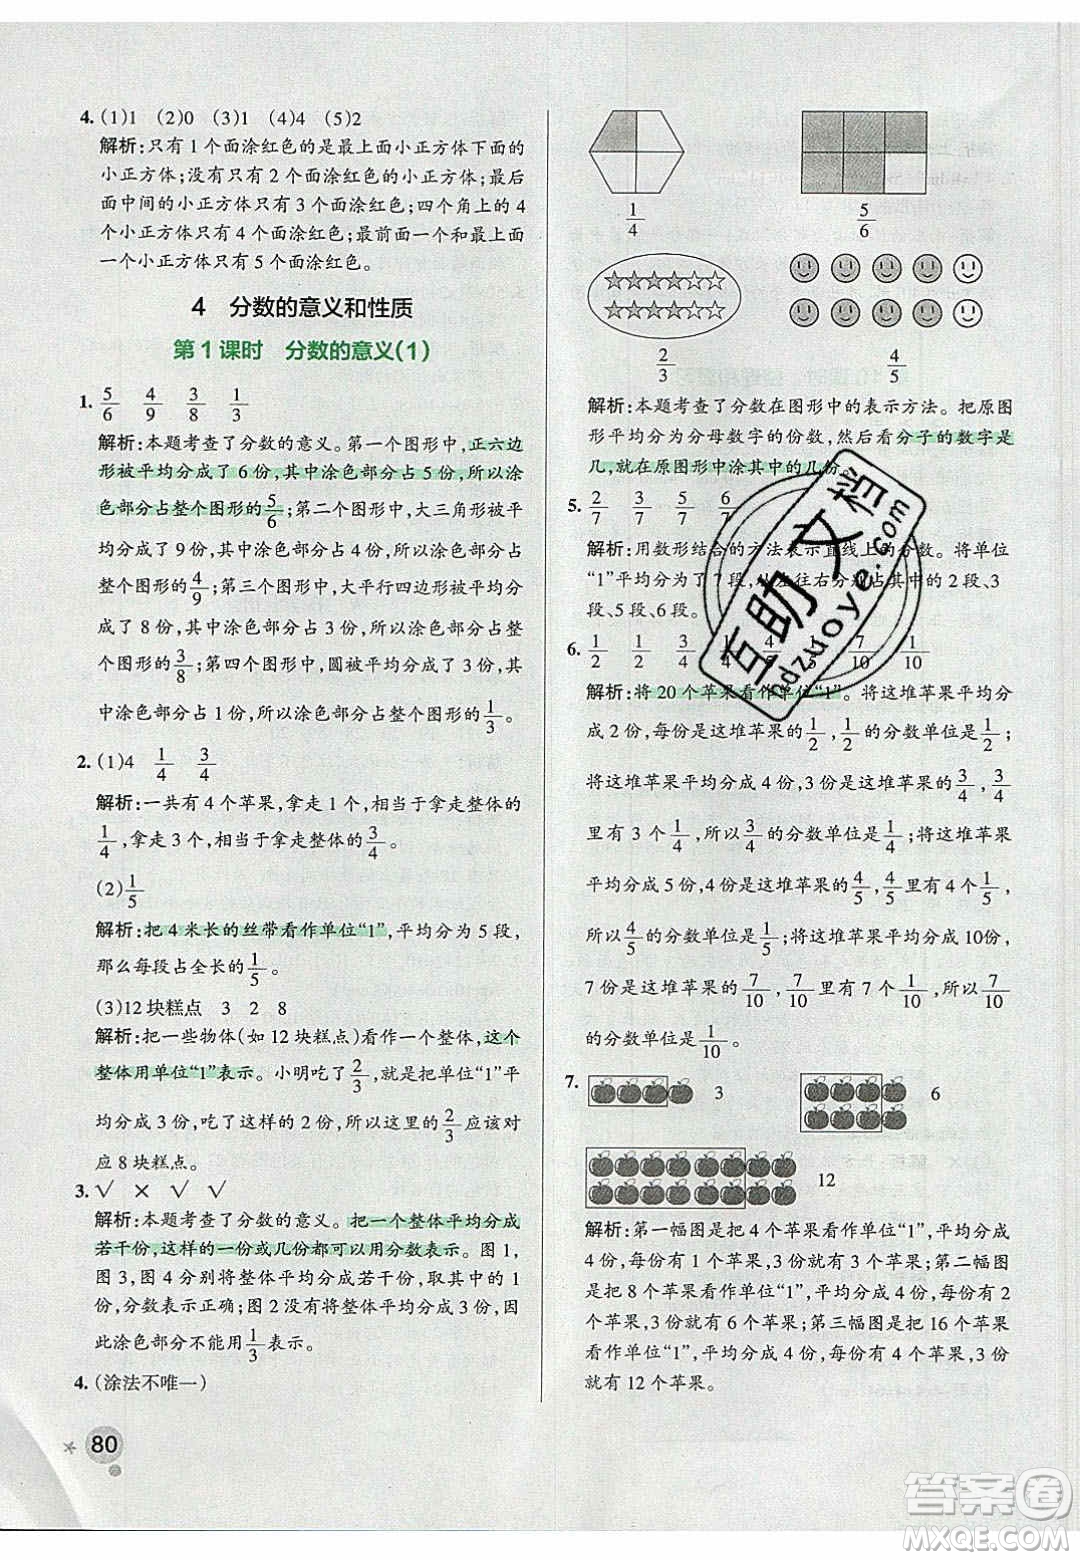 4. (1)1 (2)0 (3)1 (4)4 (5)2
解析:只有1个面涂红色的是最上面小正方体下面的
小正方体;没有只有2个面涂红色的小正方体;最后
面中间的小正方体只有3个面涂红色;四个角上的4
个小正方体只有4个面涂红色;最前面一个和最上面
一个小正方体只有5个面涂红色。
4 分数的意义和性质
第1课时 分数的意义(1)
1. 5/6 4/9 3/8 1/3
解析:本题考查了分数的意义。第一个图形中,正六边
形被平均分成了6份,其中涂色部分占5份,所以涂
色部分占整个图形的5/6;第二个图形中,大三角形被平
均分成了9份,其中涂色部分占4份,所以涂色部分占
整个图形的4/9;第三个图形中,大平行四边形被平均分
成了8份,其中涂色部分占3份,所以涂色部分占整
个图形的3/8;第四个图形中,圆被平均分成了3份,其
中涂色部分占1份,所以涂色部分占整个图形的1/3。
2. (1)4 1/4 3/4
解析:一共有4个苹果,拿走1个,相当于拿走整体的
1/4,拿走3个,相当于拿走整体的3/4。
(2)1/5
解析:把4米长的丝带看作单位“1”,平均分为5段,
那么每段占全长的1/5。
(3)12块糕点 3 2 8
解析:把一些物体(如12块糕点)看作一个整体,这个
整体用单位“1”表示。小明吃了2/3,就是把单位“1”平
均分成3份,吃了这样的2份,所以这里的2/3应该对
应8块糕点。
3. √ × √ √
解析:本题考查了分数的意义。把一个整体平均分成
若干份,这样的一份或几份都可以用分数表示。图1,
图3,图4分别将整体平均分成若干份,取其中的1
份,分数表示正确;图2没有将整体平均分成3份,因
此涂色部分不能用1/3表示。
4. (涂法不唯一)
80
1/4 5/6
2/3 4/5
解析:本题考查了分数在图形中的表示方法。把原图
形平均分为分母数字的份数,然后看分子的数字是
几,就在原图形中涂其中的几份。
5. 2/7 3/7 5/7 6/7
解析:用数形结合的方法表示直线上的分数。将单位
“1”平均分为了7段,从左往右分别占其中的2段、3
段、5段、6段。
6. 1/2 1/2 3/4 1/4 4/5 1/5 7/10 1/10
解析:将20个苹果看作单位“1”。将这堆苹果平均分
成2份,每份是这堆苹果的1/2,1/2的分数单位是1/2;
将这堆苹果平均分成4份,3份是这堆苹果的3/4,3/4
里有3个1/4,所以3/4的分数单位是1/4;将这堆苹果
平均分成5份,4份是这堆苹果的4/5,4/5里有4个1/5,
所以4/5的分数单位是1/5;将这堆苹果平均分成10份,
7份是这堆苹果的7/10,7/10里有7个1/10,所以7/10
的分数单位是1/10。
7. 3 6
12
解析:第一幅图是把4个苹果看作单位“1”,平均分成
4份,每份有1个苹果,3份有3个苹果;第二幅图是
把8个苹果看作单位“1”,平均分成4份,每份有2个
苹果,3份就有6个苹果;第三幅图是把16个苹果
看作单位“1”,平均分成4份,每份有4个苹果,3份就
有12个苹果。
互助文档
hdzuoye.com
答案圈
MXQE.COM